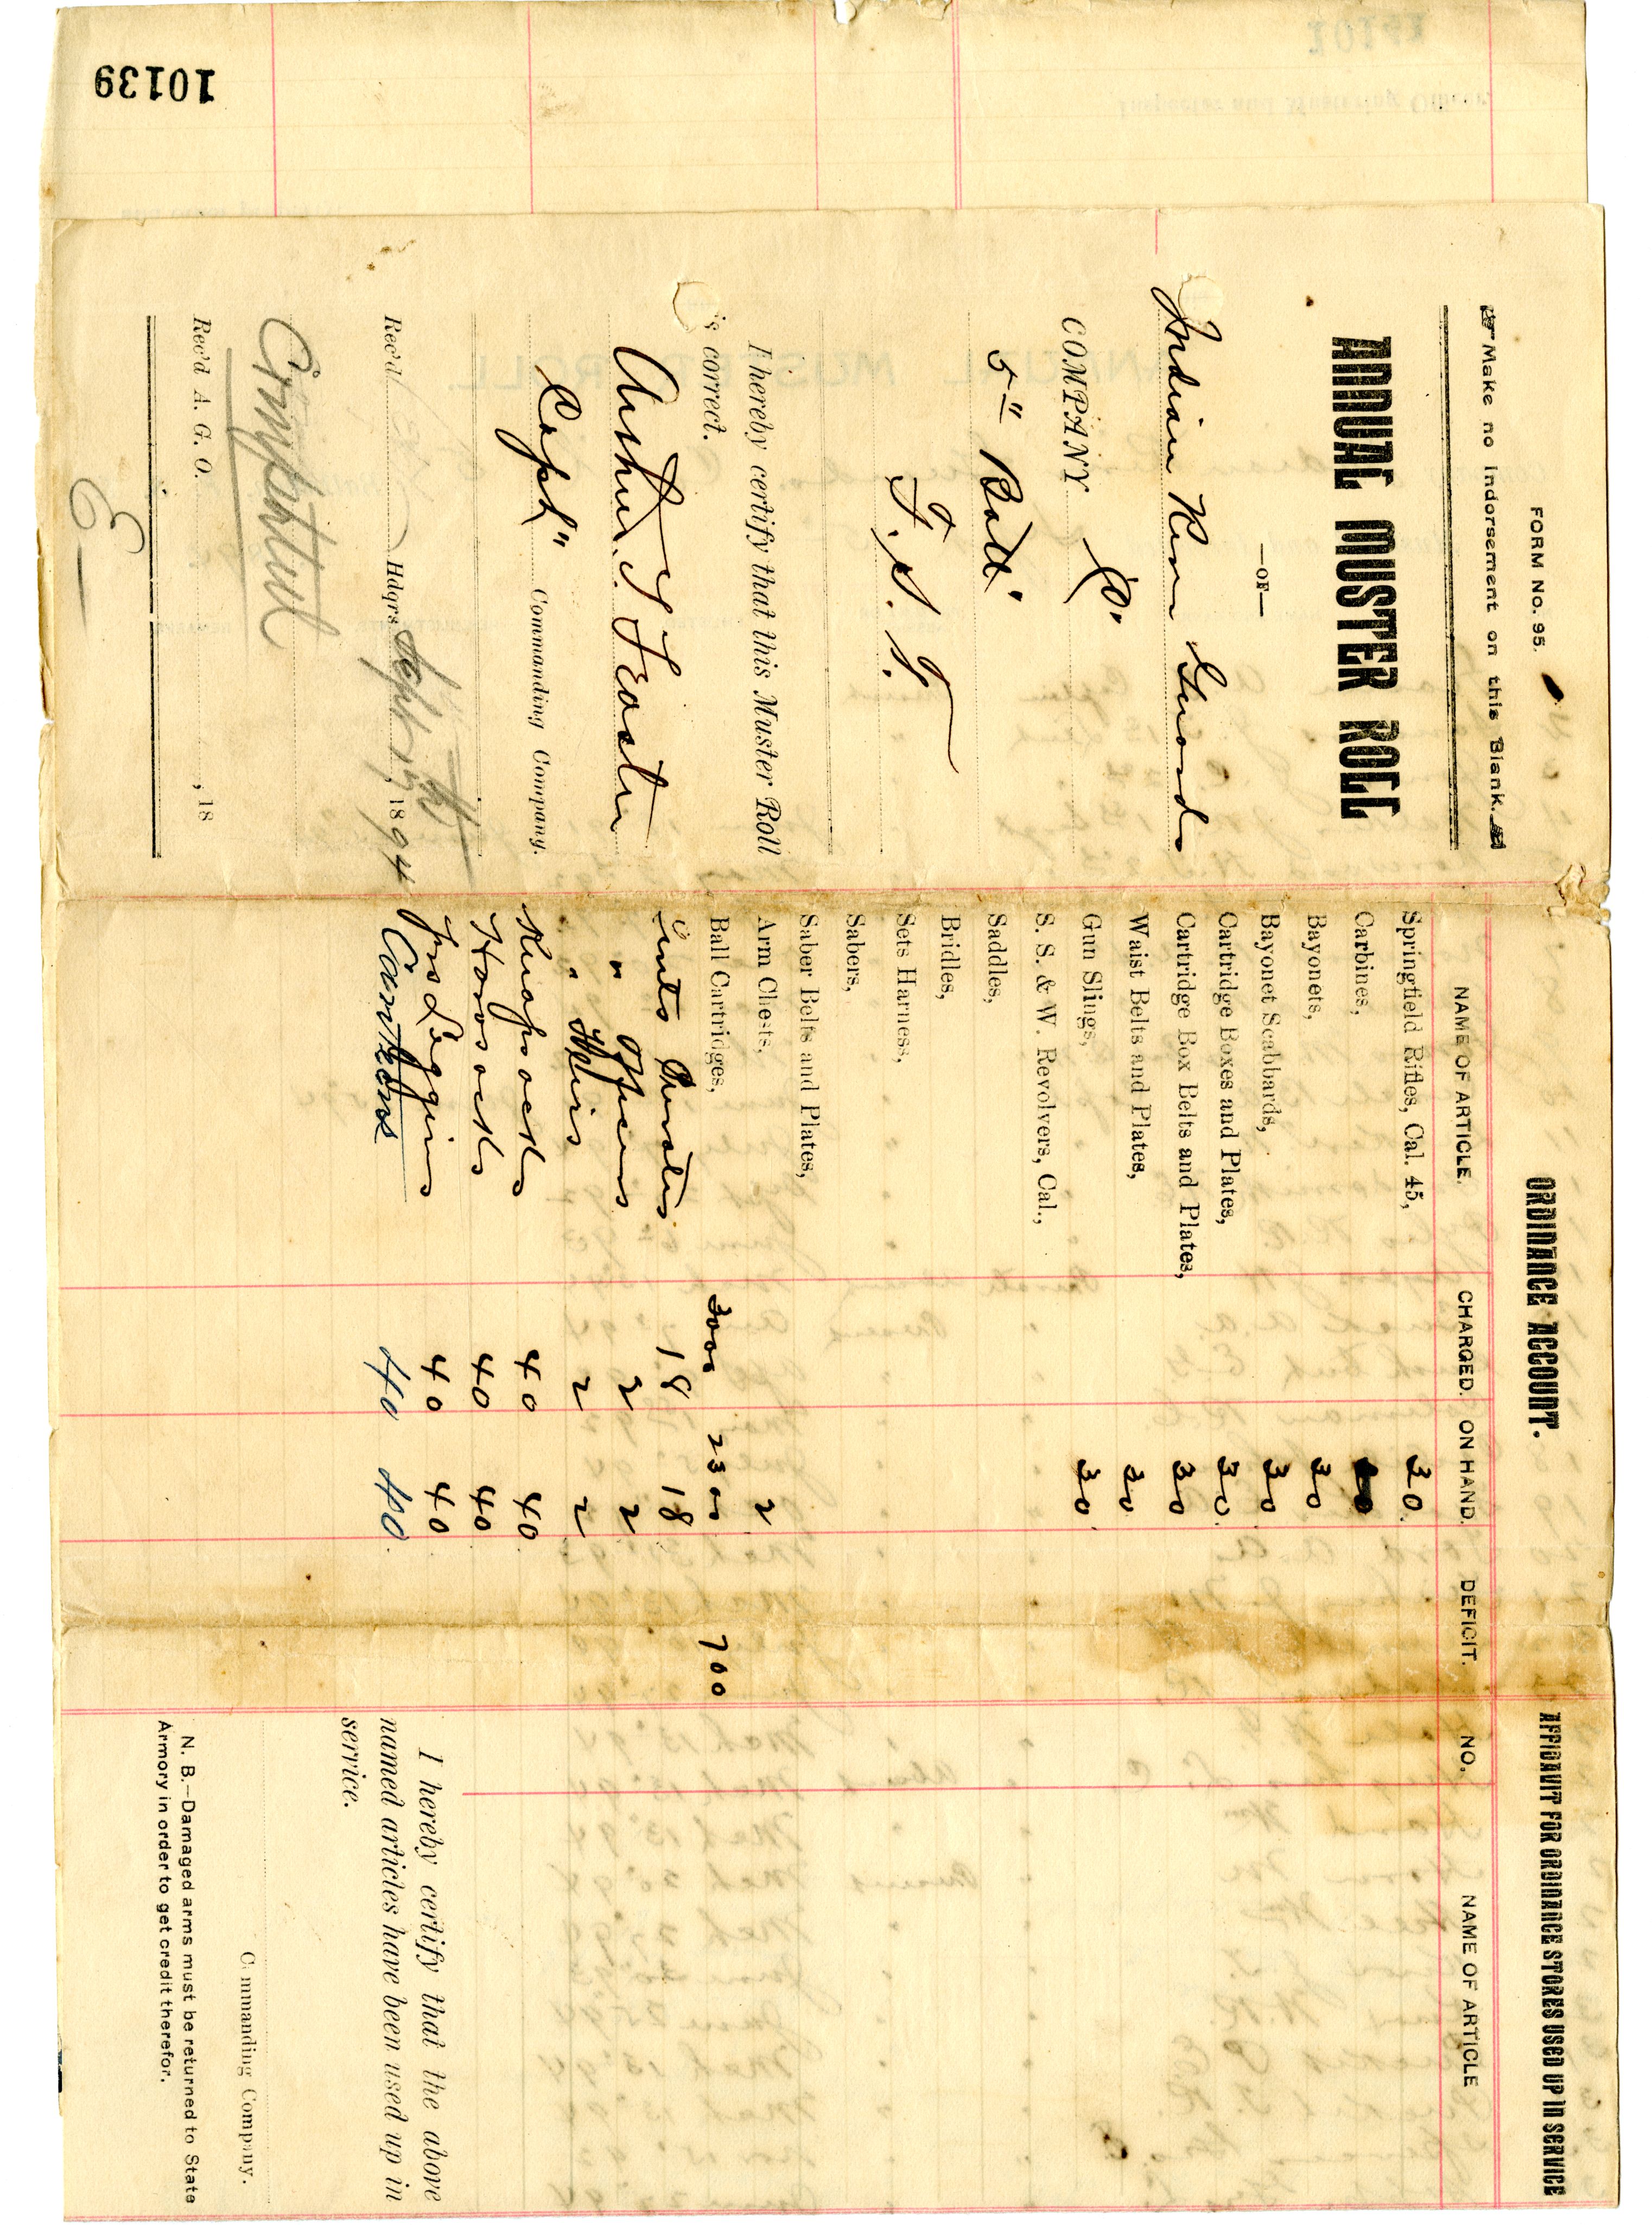 10139
FORM No. 95.
Make no Indorsement on this Blank.
ANNUAL MUSTER ROLL
—OF—
Indian River Guards
COMPANY "D"
5" Batt"
F. S. T.
I hereby certify that this Muster Roll
is correct.
Arthur T Feaster
Capt" Commanding Company.
Rec'd Hdqrs Sept 17th, 1894
Rec'd A. G. O. , 18
ORDINANCE ACCOUNT.
NAME OF ARTICLE. CHARGED. ON HAND. DEFICIT.
Springfield Rifles, Cal. 45, 30
Carbines,
Bayonets, 30
Bayonet Scabbards, 30
Cartridge Boxes and Plates, 30
Cartridge Box Belts and Plates, 30
Waist Belts and Plates, 30
Gun Slings, 30
S. S. & W. Revolvers, Cal.,
Saddles,
Bridles,
Sets Harness,
Sabers,
Saber Belts and Plates,
Arm Chests, 2
Ball Cartridges, 3000 2300 700
Tents Privates 18 18
" Officers 2 2
" Flies 2 2
Knapsacks 40 40
Haversacks 40 40
prs Leggins 40 40
Canteens 40 40
AFFIDAVIT FOR ORDINANCE STORES USED UP IN SERVICE
NO. NAME OF ARTICLE
I hereby certify that the above
named articles have been used up in
service.
Commanding Company.
N. B.—Damaged arms must be returned to State
Armory in order to get credit therefor.